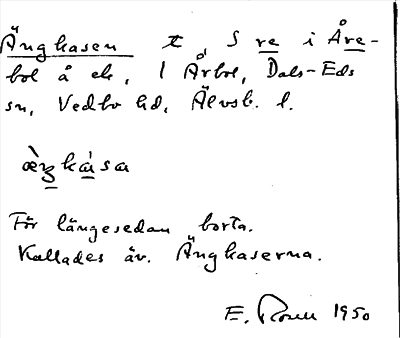 Ängkasen t, S re i Åre-
bol å ek, l Årbol, Dals-Eds
sn, Vedbo hd, Älvsb. l.
För längesedan borta.
Kallades äv. Ängkaserna.
E. 1950